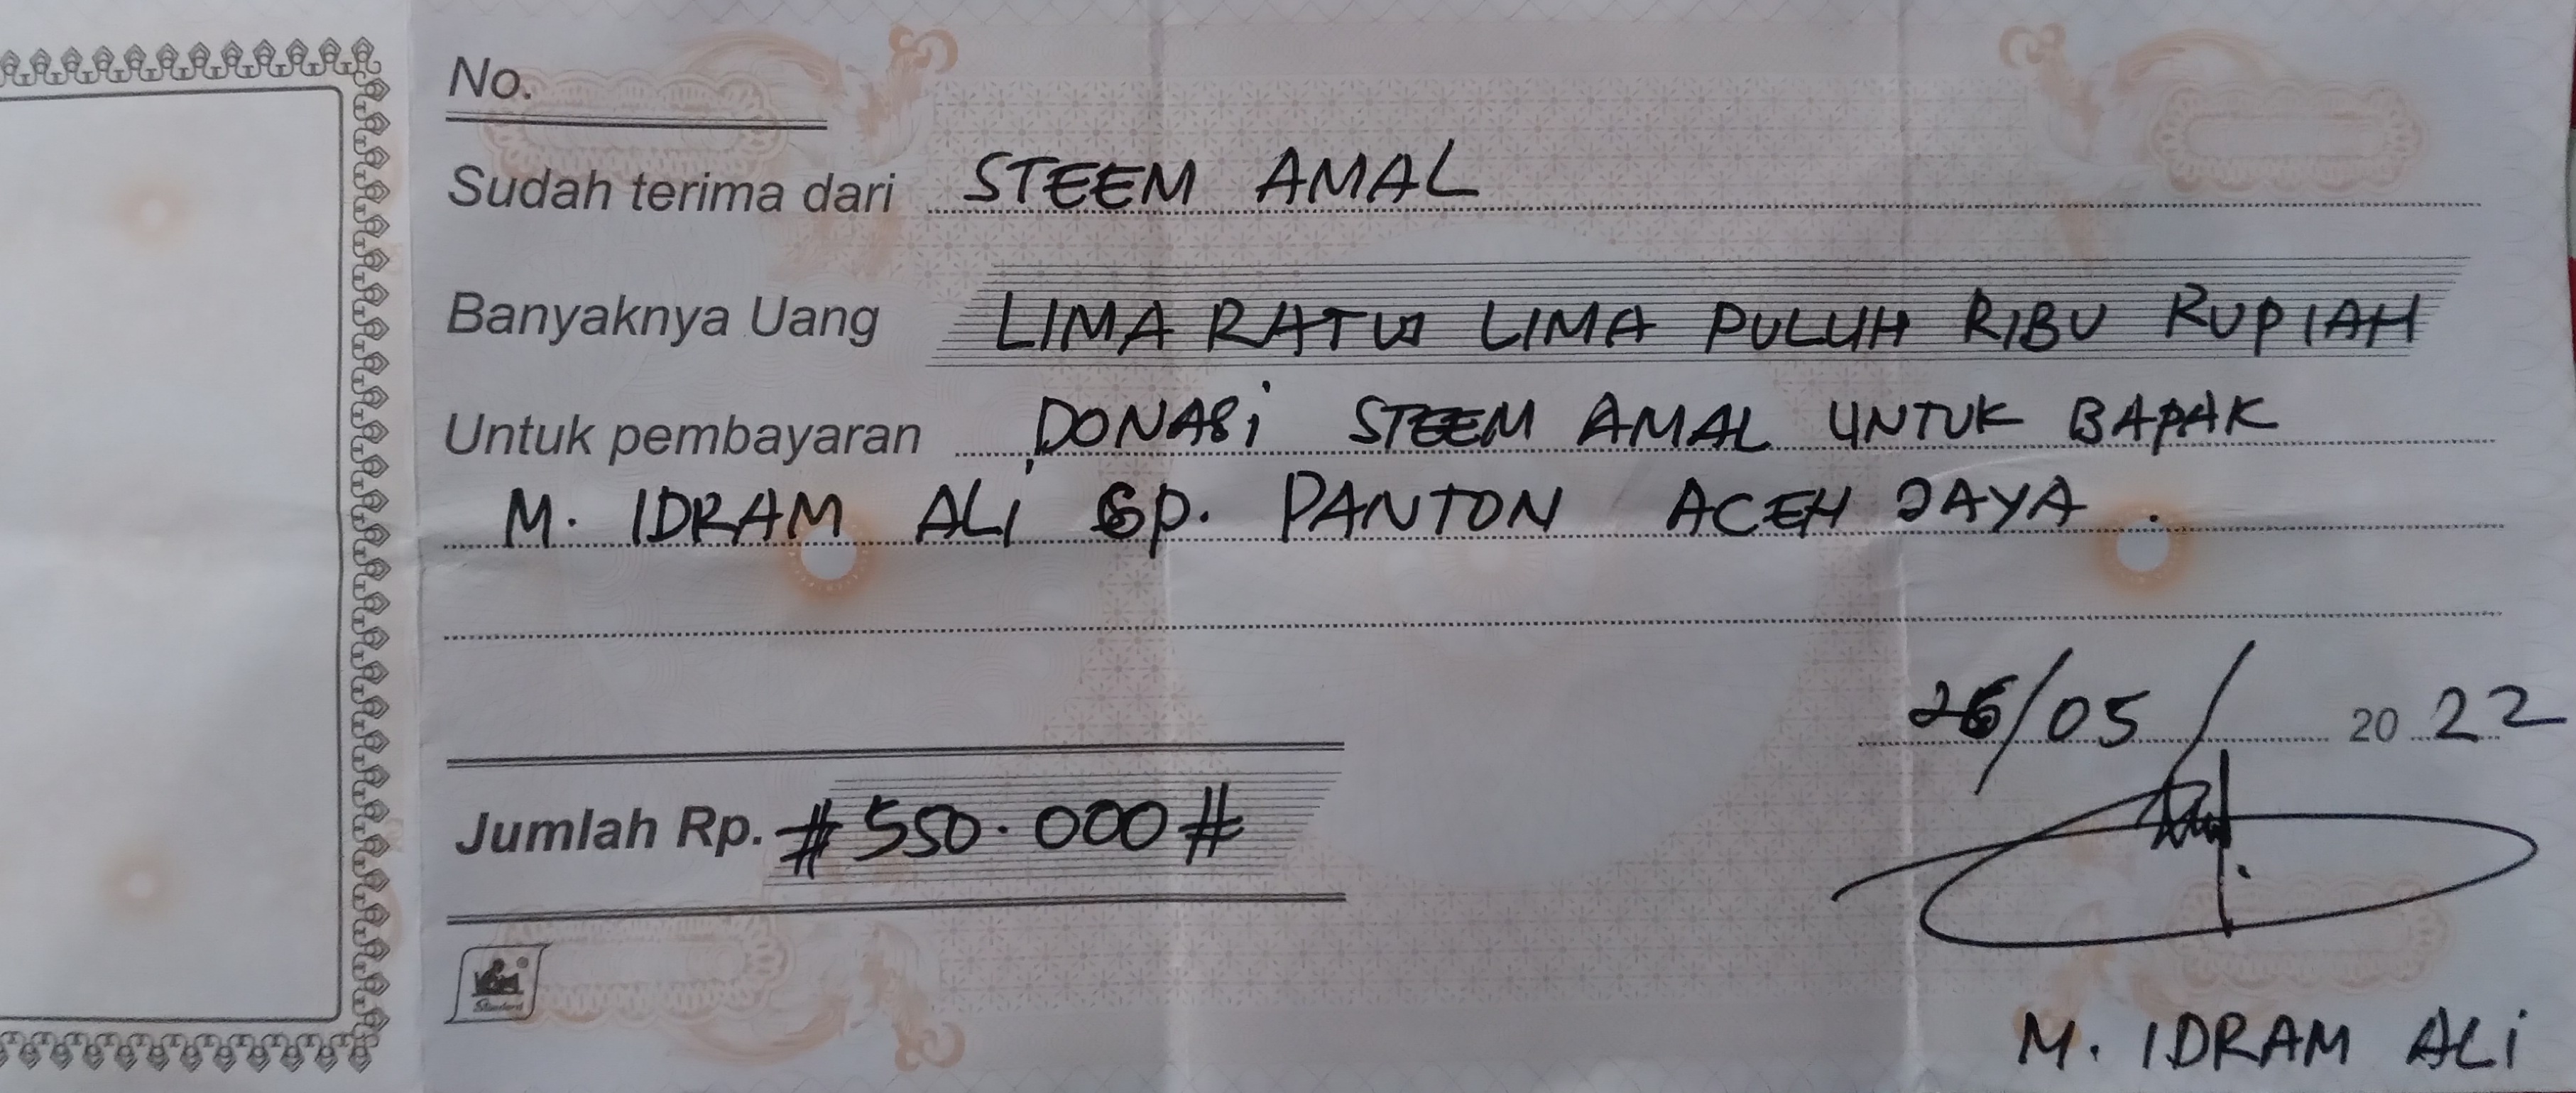 No.
Sudah terima dari STEEM AMAL
Banyaknya Uang LIMA RATUS LIMA PULUH RIBU RUPIAH
Untuk pembayaran DONASI STEEM AMAL UNTUK BAPAK
M. IDRAM ALI GP. PANTON ACEH JAYA.
26/05/2022
Jumlah Rp. #550.000#
M. IDRAM ALI